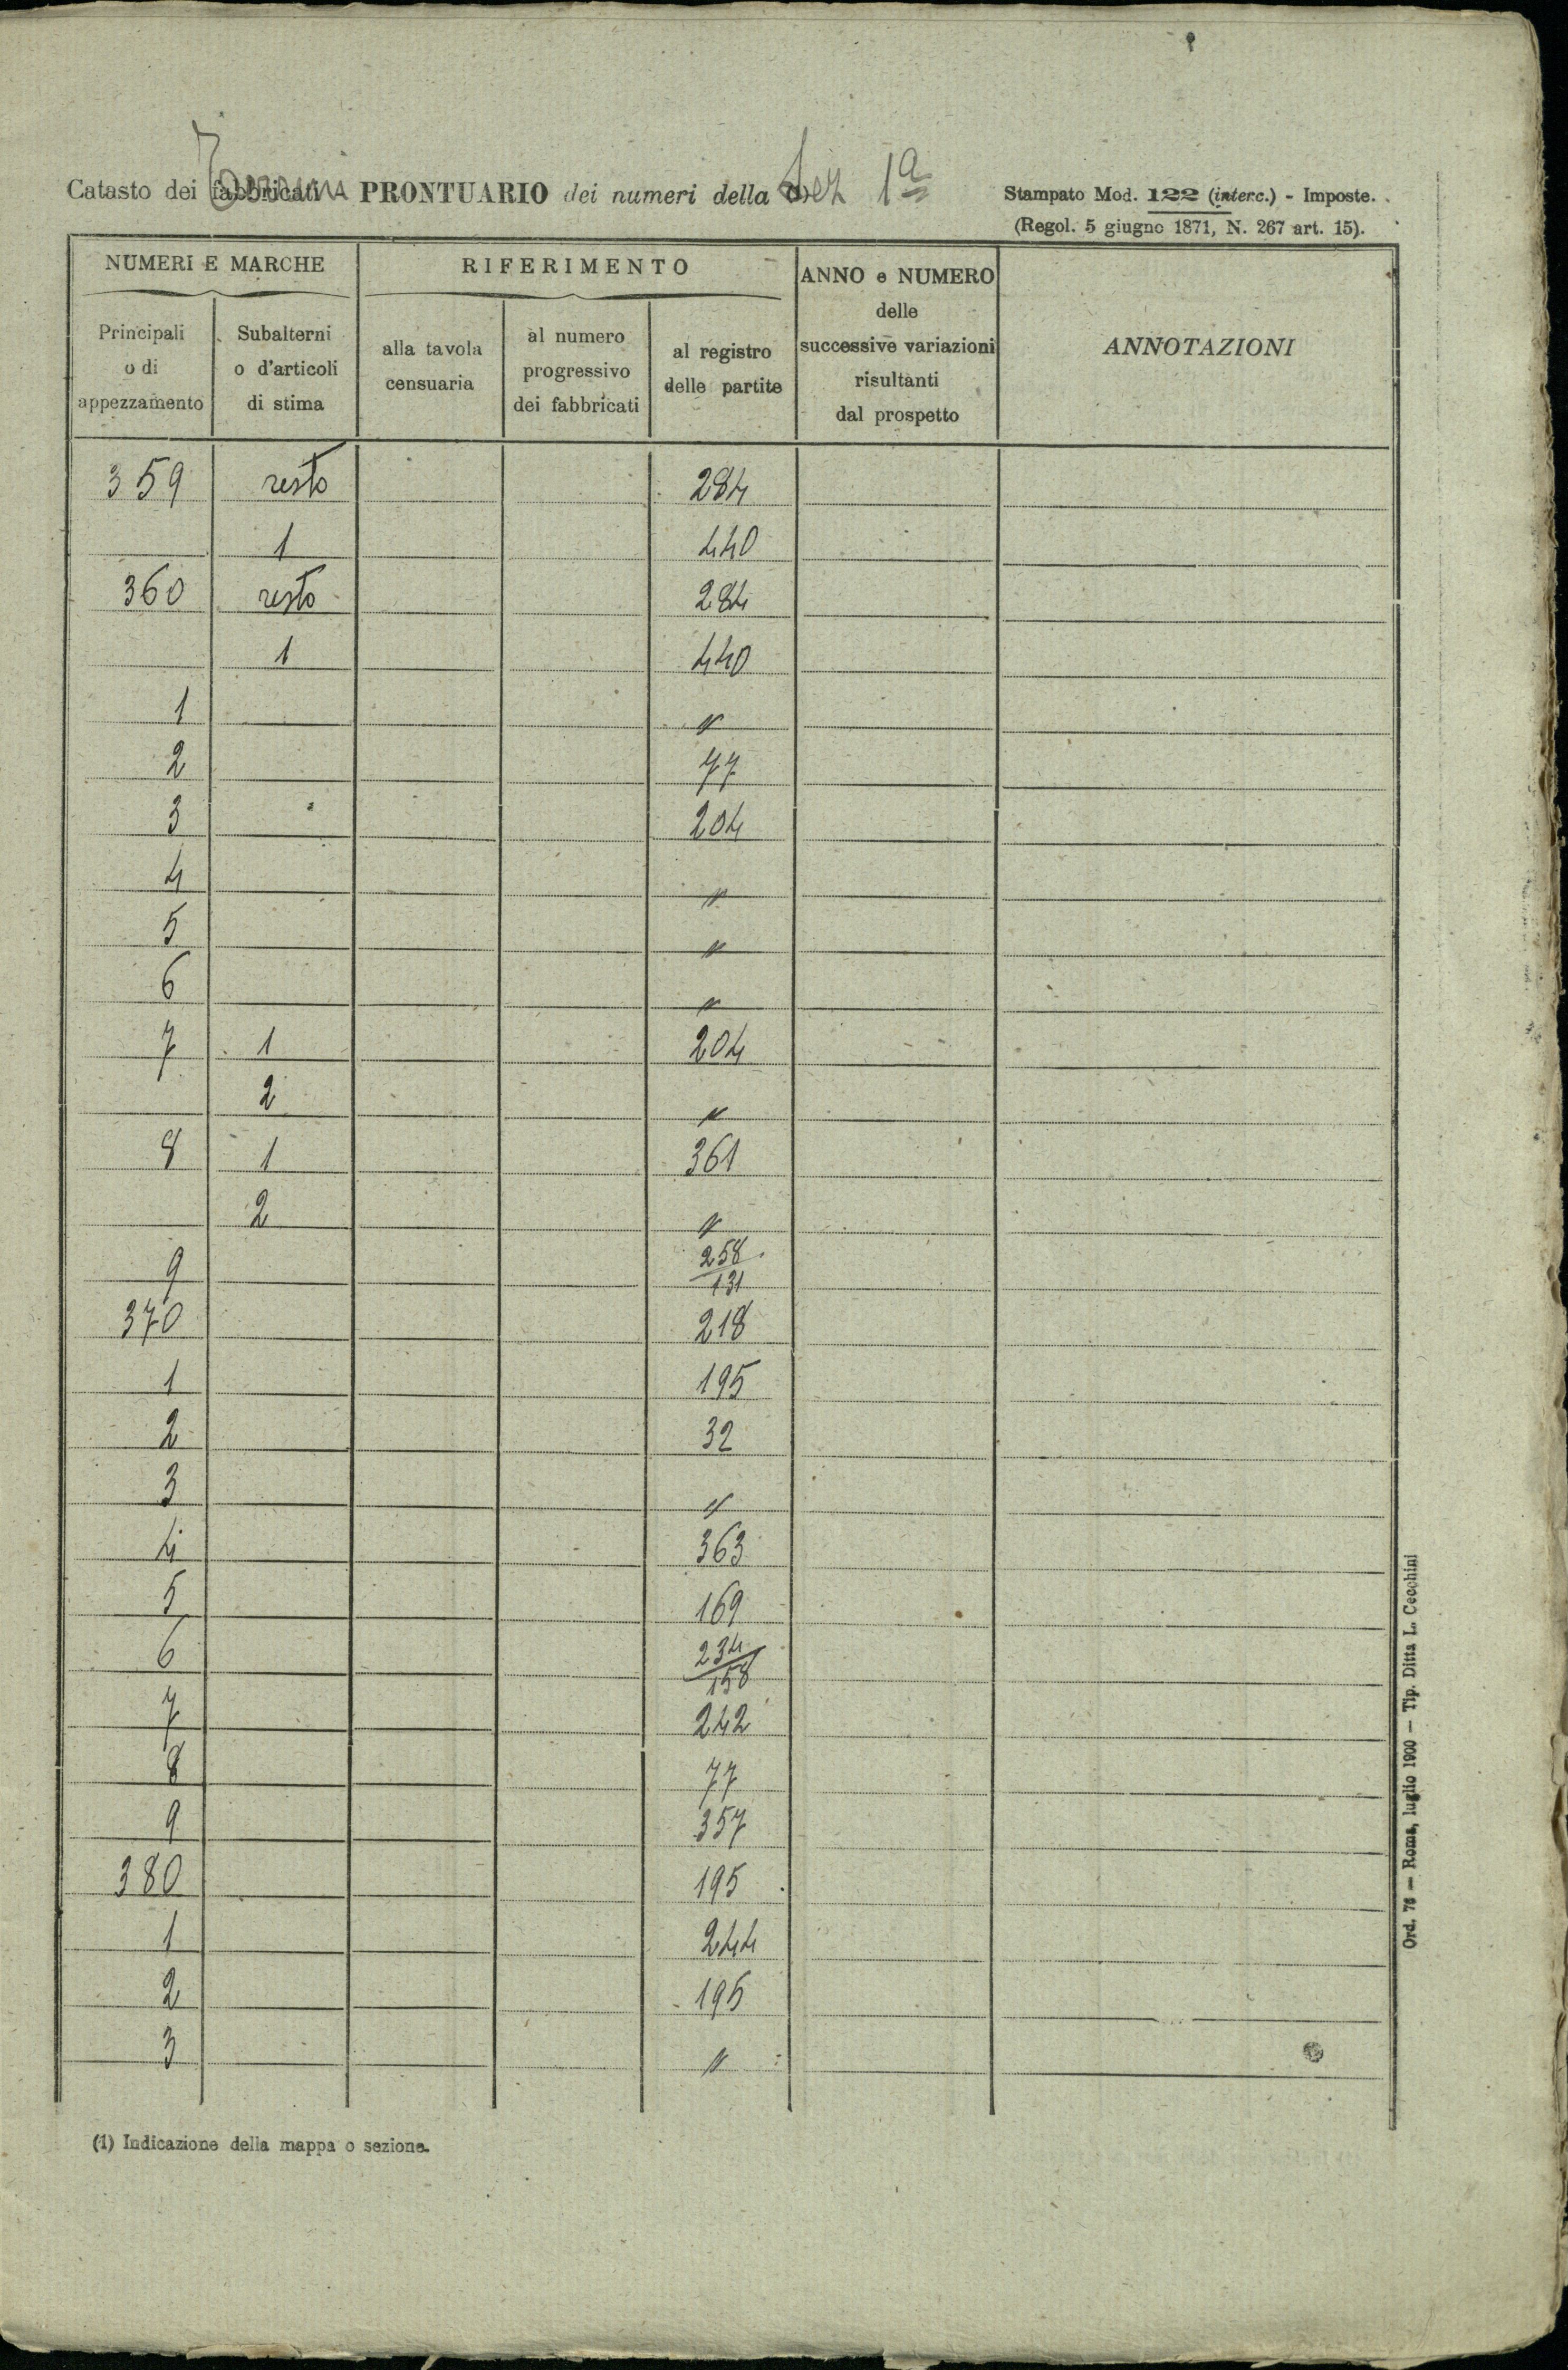 Catasto dei fabbricati Terreni PRONTUARIO dei numeri della Sez 1ª
Stampato Mod. 122 (interc.) - Imposte.
(Regol. 5 giugno 1871, N. 267 art. 15).
NUMERI E MARCHE
Principali
o di
appezzamento
Subalterni
o d'articoli
di stima
RIFERIMENTO
alla tavola
censuaria
al numero
progressivo
dei fabbricati
al registro
delle partite
ANNO e NUMERO
delle
successive variazioni
risultanti
dal prospetto
ANNOTAZIONI
359 resto 284
1 440
360 resto 284
1 440
1 "
2 77
3 204
4 "
5 "
6 "
7 1 204
2 "
8 1 361
2 "
9 258/131
370 218
1 195
2 32
3 "
4 363
5 169
6 234/158
7 242
8 77
9 357
380 195
1 244
2 195
3 "
(1) Indicazione della mappa o sezione.
Ord. 76 — Roma, luglio 1900 — Tip. Ditta L. Cecchini